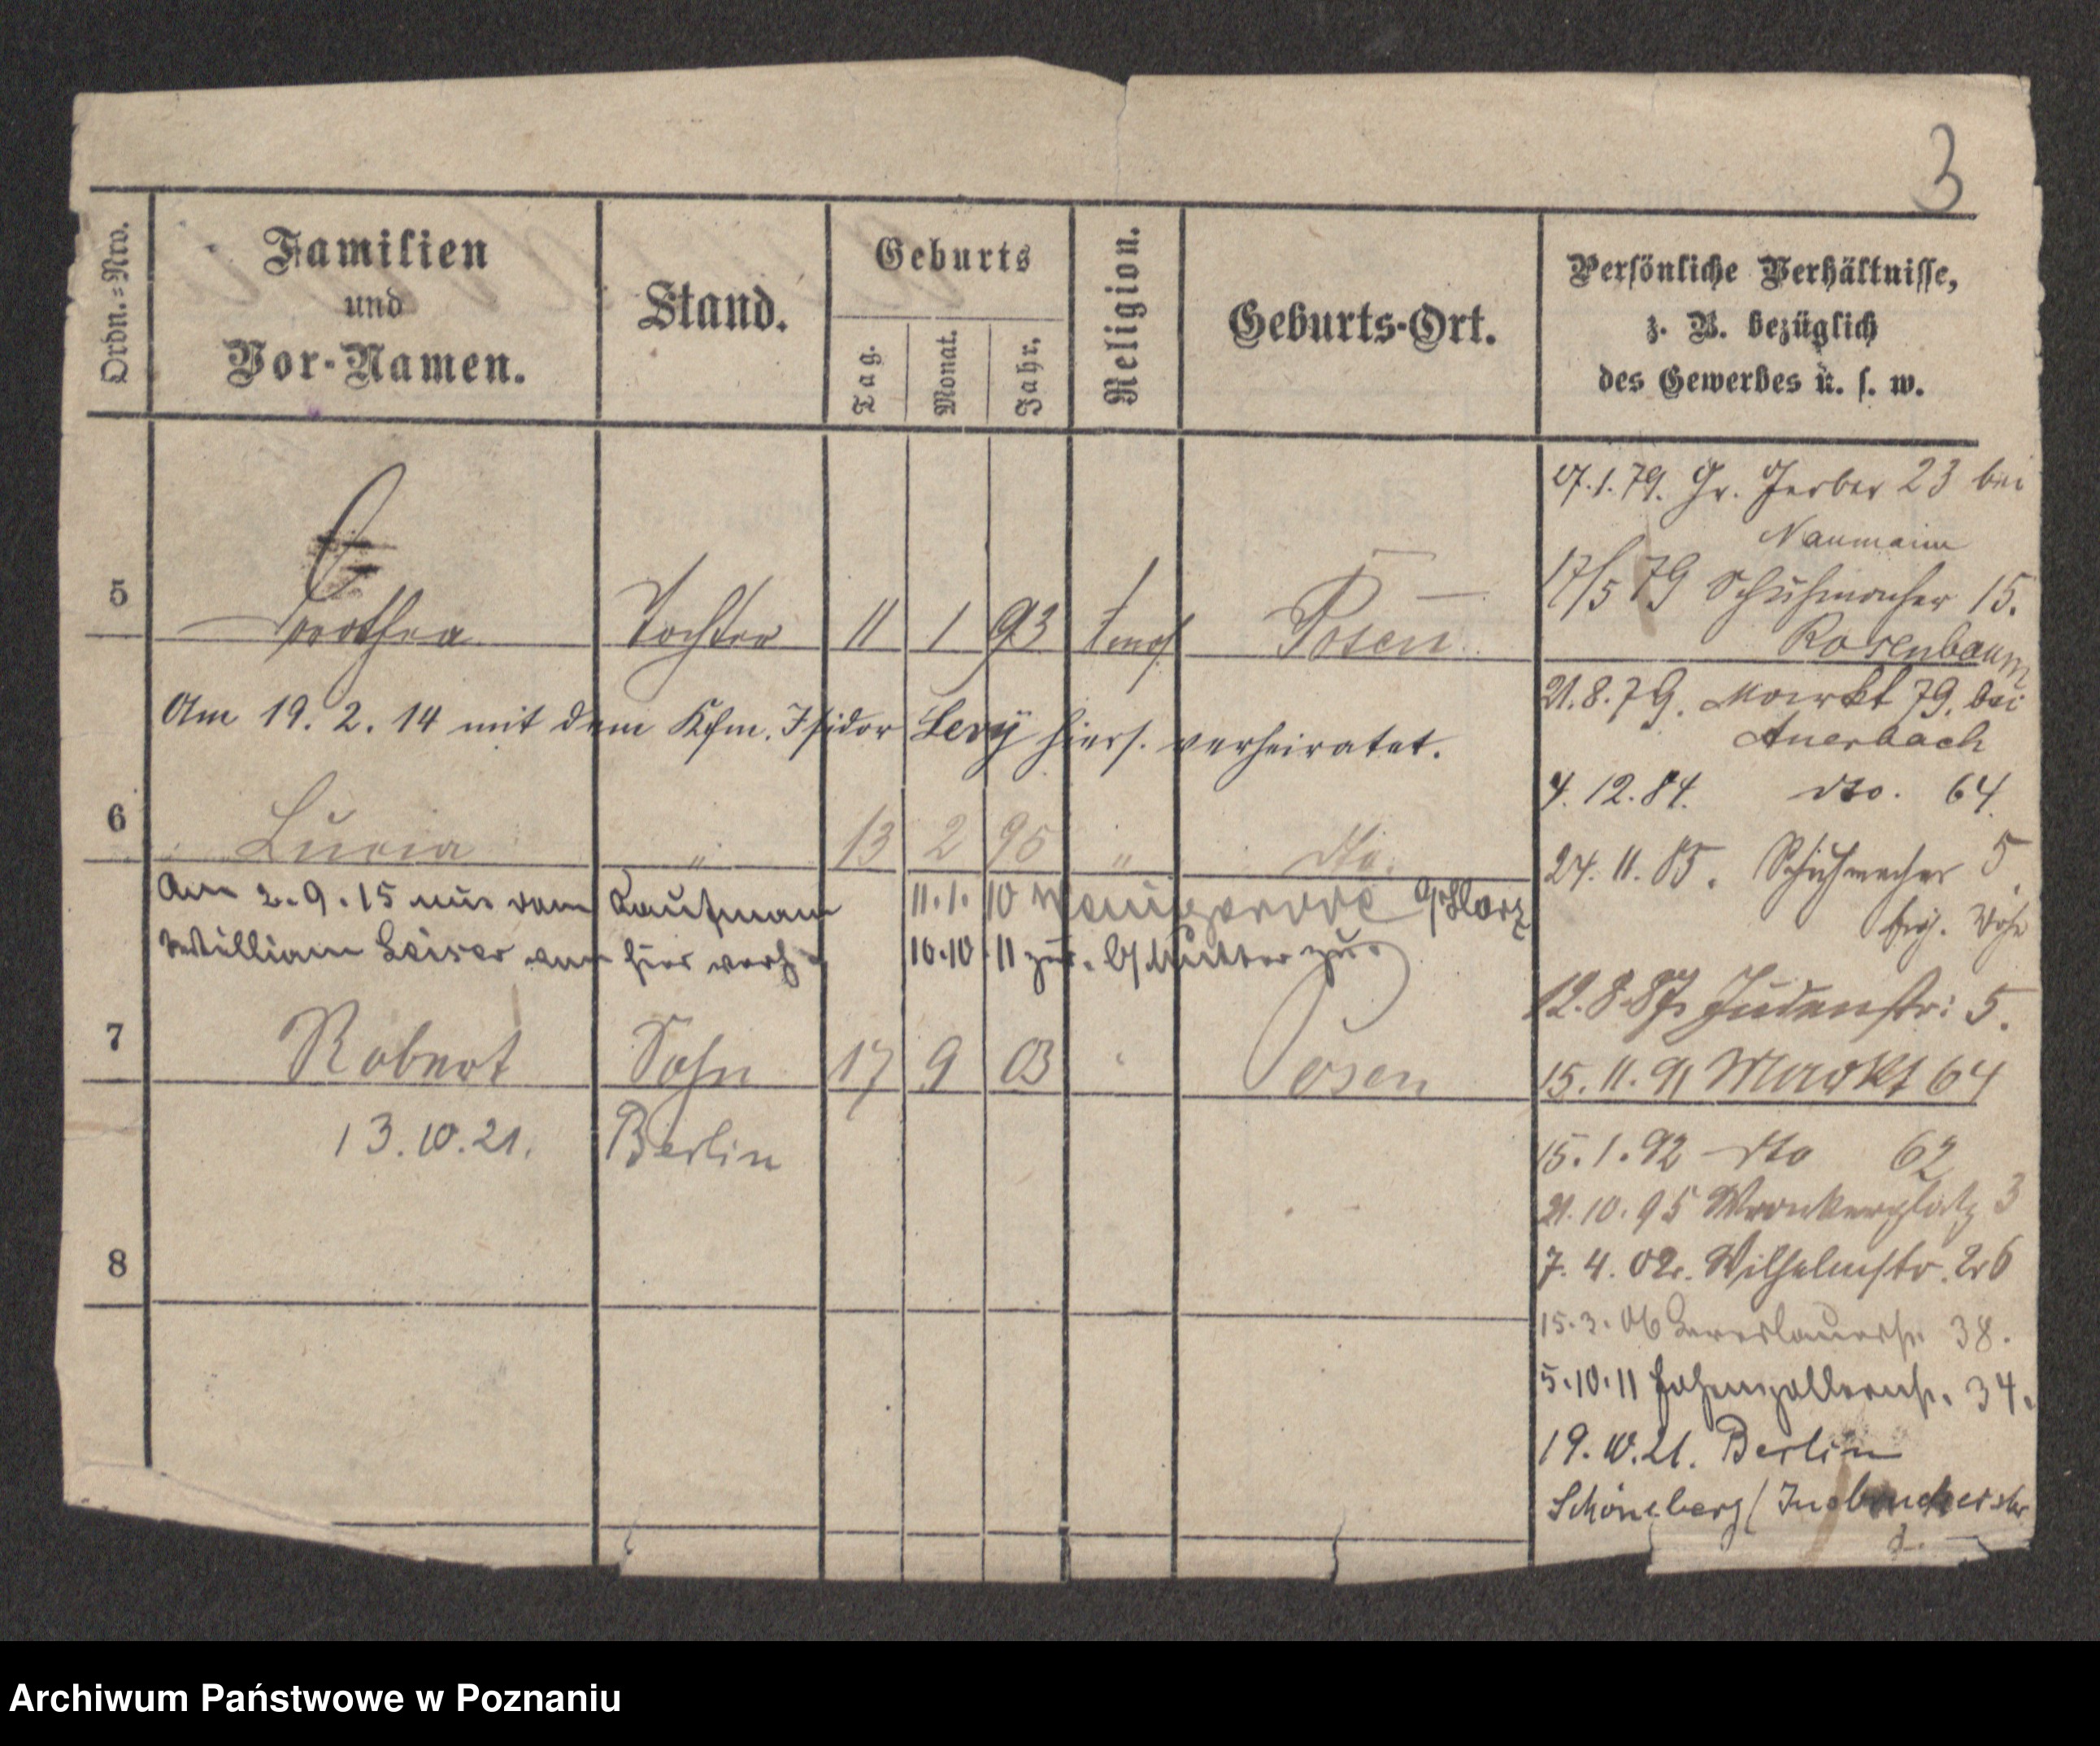 3
Ordn.=Nro.
Familien
und
Vor-Namen.
Stand.
Geburts
Tag.
Monat.
Jahr.
Religion.
Geburts-Ort.
Persönliche Verhältnisse,
z. B. bezüglich
des Gewerbes u. s. w.
5 Dorothea Tochter 11 1 93 mos. Posen
Am 19. 2. 14 mit dem Kfm. Isidor Levy hiers. verheiratet.
6 Lucia " 13 2 95 " dto.
Am 2.9.15 mit dem Kaufmann
William Leiser von hier verh.
11.1.10 Wernigerode a/Harz
10.10.11 zur. b/Mutter zur.
7 Robert Sohn 17 9 03 " Posen
13.10.21. Berlin
8
27.1.79. Gr. Gerber 23 bei
Naumann
17/5 79 Schuhmacher 15.
Rosenbaum
21.8.79. Markt 79. bei
Auerbach
4.12.84. dto. 64.
24.11.85. Schuhmacher 5.
12.8.87. Judenstr: 5.
15.11.91 Markt 64
15.1.92 dto 62
21.10.95 Wronkerplatz 3
7.4.02. Wilhelmstr. 26
15.3.06 Breslauerstr. 38.
5.10.11 Hohenzollernstr. 34.
19.10.21. Berlin
Schöneberg/ Innsbruckerstr
Archiwum Państwowe w Poznaniu